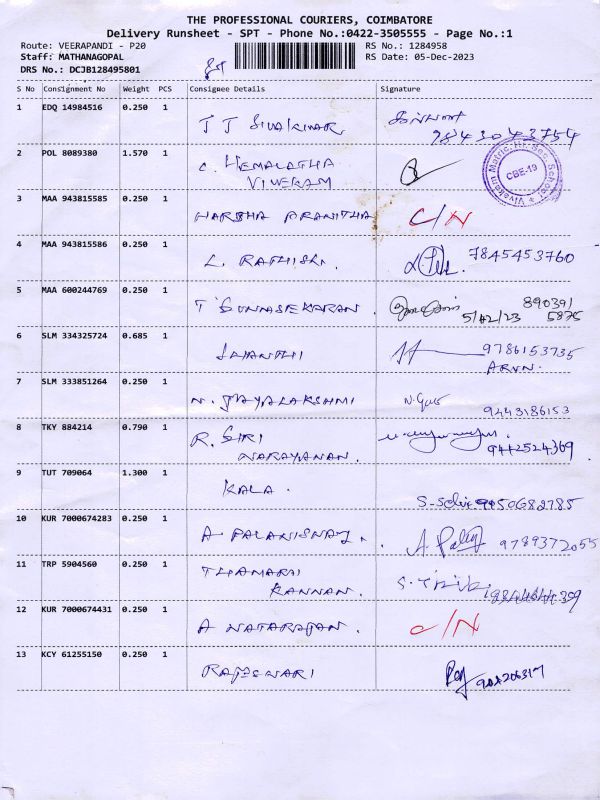 THE PROFESSIONAL COURIERS, COIMBATORE
Delivery Runsheet - SPT - Phone No.:0422-3505555 - Page No.:1
Route: VEERAPANDI - P20
RS No.: 1284958
Staff: MATHANAGOPAL
RS Date: 05-Dec-2023
DRS No.: DCJB128495801
S No Consignment No Weight PCS Consignee Details Signature
1 EDQ 14984516 0.250 1 T T SIVAKUMAR
9843043754
2 POL 8089380 1.570 1 C. HEMALATHA
VIVEKAM
Vivekam Matric. Hr. Sec. School
CBE-19
3 MAA 943815585 0.250 1 HARSHA PRANITHA C/N
4 MAA 943815586 0.250 1 L. RATHISRI. 7845453760
5 MAA 600244769 0.250 1 T GUNASEKARAN 890391
5/12/23 5875
6 SLM 334325724 0.685 1 JAYANTHI 9786153735
ARUN.
7 SLM 333851264 0.250 1 N. JAYALAKSHMI
9443186153
8 TKY 884214 0.790 1 R. SIRI
NARAYANAN. 9442524369
9 TUT 709064 1.300 1 KALA.
10 KUR 7000674283 0.250 1 A PALANISWAMY. 9789372055
11 TRP 5904560 0.250 1 THAMARAI
KANNAN.
12 KUR 7000674431 0.250 1 A NATARAJAN. C/N
13 KCY 61255150 0.250 1 RAJESWARI